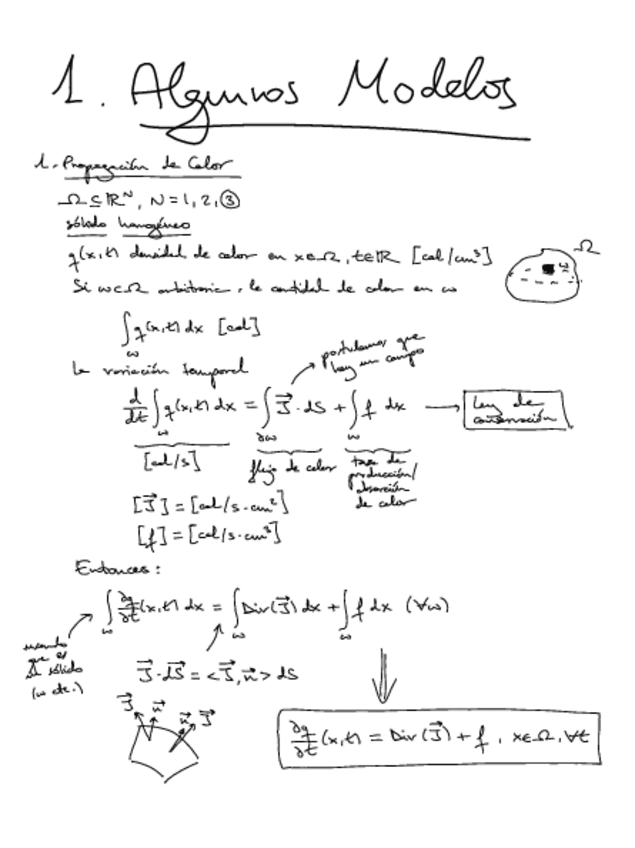 1. Algunos Modelos
1.- Propagación de Calor
Ω ⊆ ℝᴺ, N = 1, 2, ③
sólido homogéneo
q(x,t) densidad de calor en x∈Ω, t∈ℝ [cal/cm³]
Ω
ω
Si ω⊂Ω arbitrario, la cantidad de calor en ω
∫_ω q(x,t) dx [cal]
postulamos que
hay un campo
la variación temporal
d/dt ∫_ω q(x,t) dx = ∫_∂ω J⃗ · dS + ∫_ω f dx → Ley de
conservación
[cal/s] flujo de calor tasa de
producción/
absorción
de calor
[J⃗] = [cal/s·cm²]
[f] = [cal/s·cm³]
Entonces:
∫_ω ∂q/∂t (x,t) dx = ∫_ω Div(J⃗) dx + ∫_ω f dx (∀ω)
usando
que es
sólido
(ω cte.)
J⃗ · dS⃗ = <J⃗, n⃗> dS
J⃗ n⃗ n⃗ J⃗
∂q/∂t (x,t) = Div(J⃗) + f, x∈Ω, ∀t